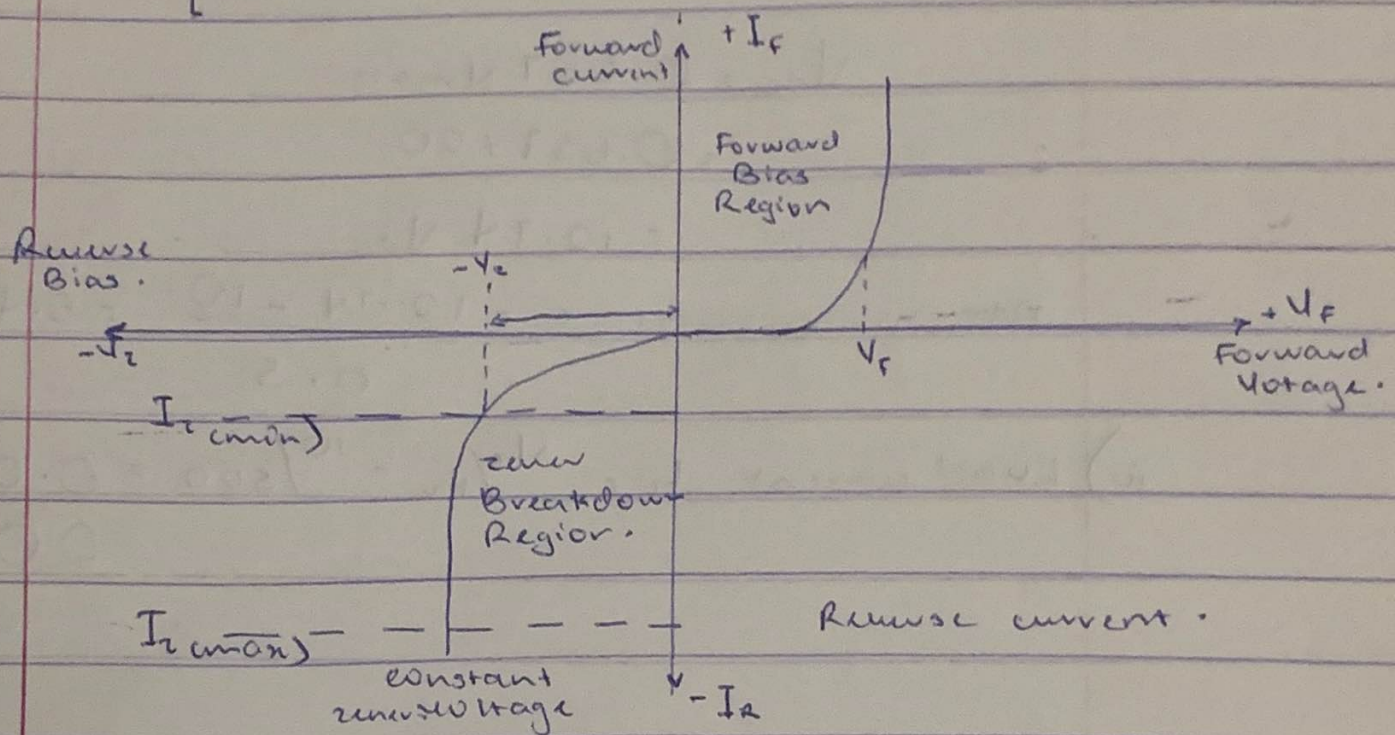 + I_F
Forward
current
Forward
Bias
Region
Reverse
Bias.
-V_z
-V_z
+ V_F
V_F
Forward
Votage.
I_z (min)
zener
Breakdown
Region.
I_z (max)
Reverse current.
constant
zener voltage
- I_R